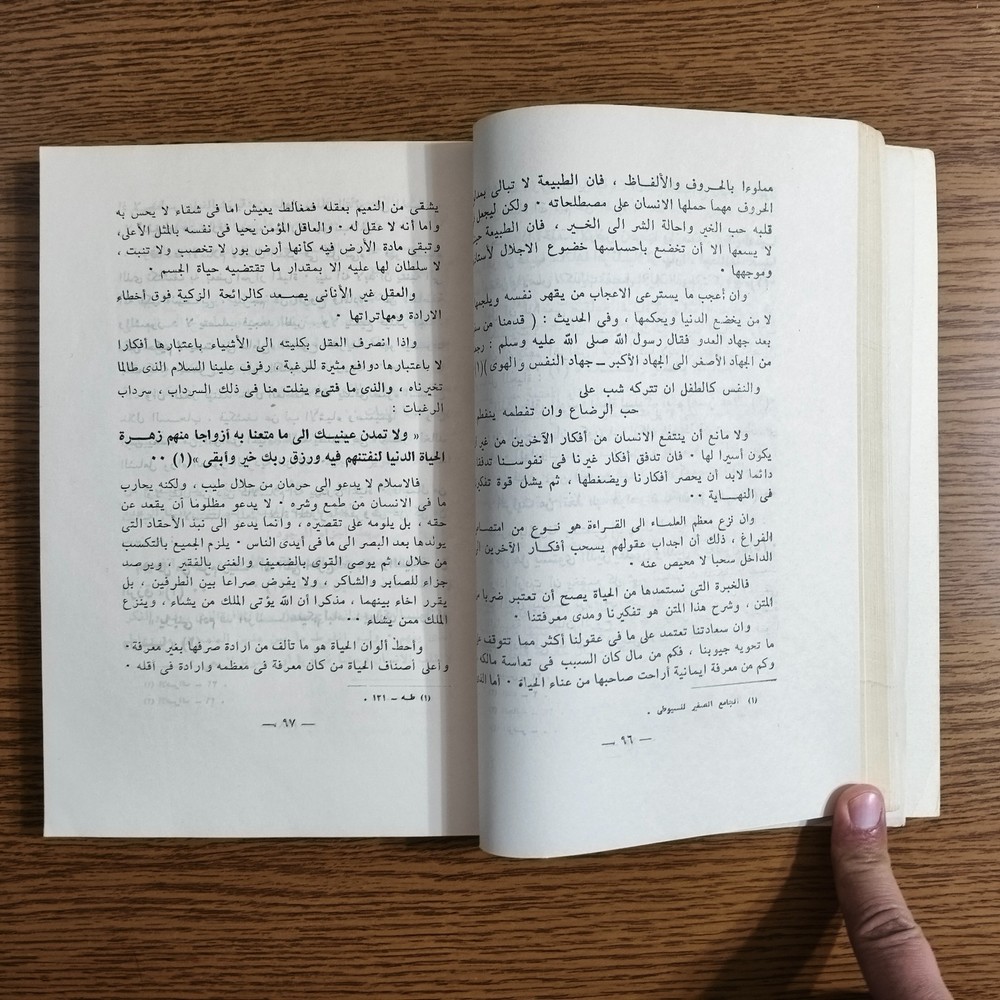 مملوءا بالحروف والألفاظ ، فان الطبيعة لا تبالى
الحروف مهما حملها الانسان على مصطلحاته ٠ ولكن ليجعل
قلبه حب الخير واحالة الشر الى الخير ، فان الطبيعة
لا يسعها الا أن تخضع باحساسها خضوع الاجلال
وموجهها ٠
وان أعجب ما يسترعى الاعجاب من يقهر نفسه
لا من يخضع الدنيا ويحكمها ، وفى الحديث : ( قدمنا من
بعد جهاد العدو فقال رسول الله صلى الله عليه وسلم :
من الجهاد الأصغر الى الجهاد الأكبر ــ جهاد النفس والهوى )(١)
والنفس كالطفل ان تتركه شب على
حب الرضاع وان تفطمه ينفطم
ولا مانع أن ينتفع الانسان من أفكار الآخرين من غير
يكون أسيرا لها ٠ فان تدفق أفكار غيرنا فى نفوسنا
دائما لابد أن يحصر أفكارنا ويضغطها ، ثم يشل قوة
فى النهاية ٠٠
وان نزع معظم العلماء الى القراءة هو نوع من
الفراغ ، ذلك أن اجداب عقولهم يسحب أفكار الآخرين
الداخل سحبا لا محيص عنه ٠
فالخبرة التى نستمدها من الحياة يصح أن تعتبر ضربا
المتن ، وشرح هذا المتن هو تفكيرنا ومدى معرفتنا ٠
وان سعادتنا تعتمد على ما فى عقولنا أكثر مما تتوقف
ما تحويه جيوبنا ، فكم من مال كان السبب فى تعاسة مالكه
وكم من معرفة ايمانية أراحت صاحبها من عناء الحياة ٠ أما
(١) الجامع الصغير للسيوطى ٠
— ٩٦ —
يشقى من النعيم بعقله فمغالط يعيش اما فى شقاء لا يحس به
واما أنه لا عقل له ٠ والعاقل المؤمن يحيا فى نفسه بالمثل الأعلى،
وتبقى مادة الأرض فيه كأنها أرض بور لا تخصب ولا تنبت ،
لا سلطان لها عليه الا بمقدار ما تقتضيه حياة الجسم ٠
والعقل غير الأنانى يصعد كالرائحة الزكية فوق أخطاء
الارادة ومهاتراتها ٠
واذا انصرف العقل بكليته الى الأشياء باعتبارها أفكارا
لا باعتبارها دوافع مثيرة للرغبة ، رفرف علينا السلام الذى طالما
تخيرناه ، والذى ما فتىء يفلت منا فى ذلك السرداب ، سرداب
الرغبات :
« ولا تمدن عينيك الى ما متعنا به أزواجا منهم زهرة
الحياة الدنيا لنفتنهم فيه ورزق ربك خير وأبقى »(١) ٠٠
فالاسلام لا يدعو الى حرمان من حلال طيب ، ولكنه يحارب
ما فى الانسان من طمع وشره ٠ لا يدعو مظلوما أن يقعد عن
حقه ، بل يلومه على تقصيره ، وانما يدعو الى نبذ الأحقاد التى
يولدها بعد البصر الى ما فى أيدى الناس ٠ يلزم الجميع بالتكسب
من حلال ، ثم يوصى القوى بالضعيف والغنى بالفقير ، ويرصد
جزاء للصابر والشاكر ، ولا يفرض صراعا بين الطرفين ، بل
يقرر اخاء بينهما ، مذكرا أن الله يؤتى الملك من يشاء ، وينزع
الملك ممن يشاء ٠٠
وأحط ألوان الحياة هو ما تألف من ارادة صرفها بغير معرفة٠
وأعلى أصناف الحياة من كان معرفة فى معظمه وارادة فى أقله ٠
(١) طه ــ ١٣١ ٠
— ٩٧ —